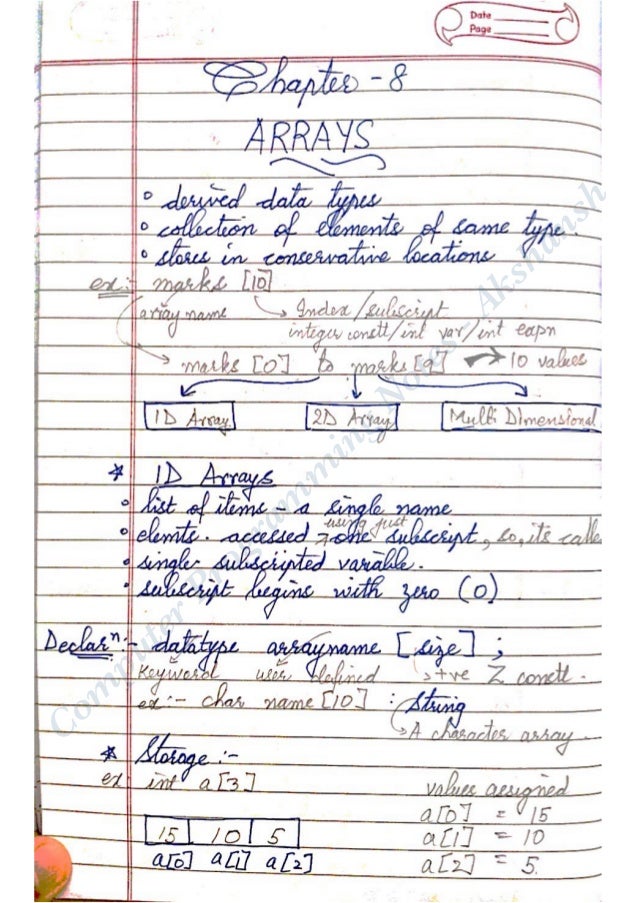 Date
Page
Chapter - 8
ARRAYS
° derived data types
° collection of elements of same type.
° stores in conservative locations
ex:- marks [10]
array name → Index/subscript
integer constt/int var/int expn
→ marks [0] to marks [9] → 10 values
1D Array 2D Array Multi Dimensional
* 1D Arrays
° list of items - a single name
using just
° elemts. accessed → one subscript, so, its calle
° single- subscripted variable.
° subscript begins with zero (0)
Declarⁿ:- datatype arrayname [size] ;
Keyword user defined → +ve Z constt.
ex:- char name [10] : String
→ A character array
* Storage :-
ex: int a[3] values assigned
a[0] = 15
15 10 5 a[1] = 10
a[0] a[1] a[2] a[2] = 5.
Computer Programming Notes - Akshansh